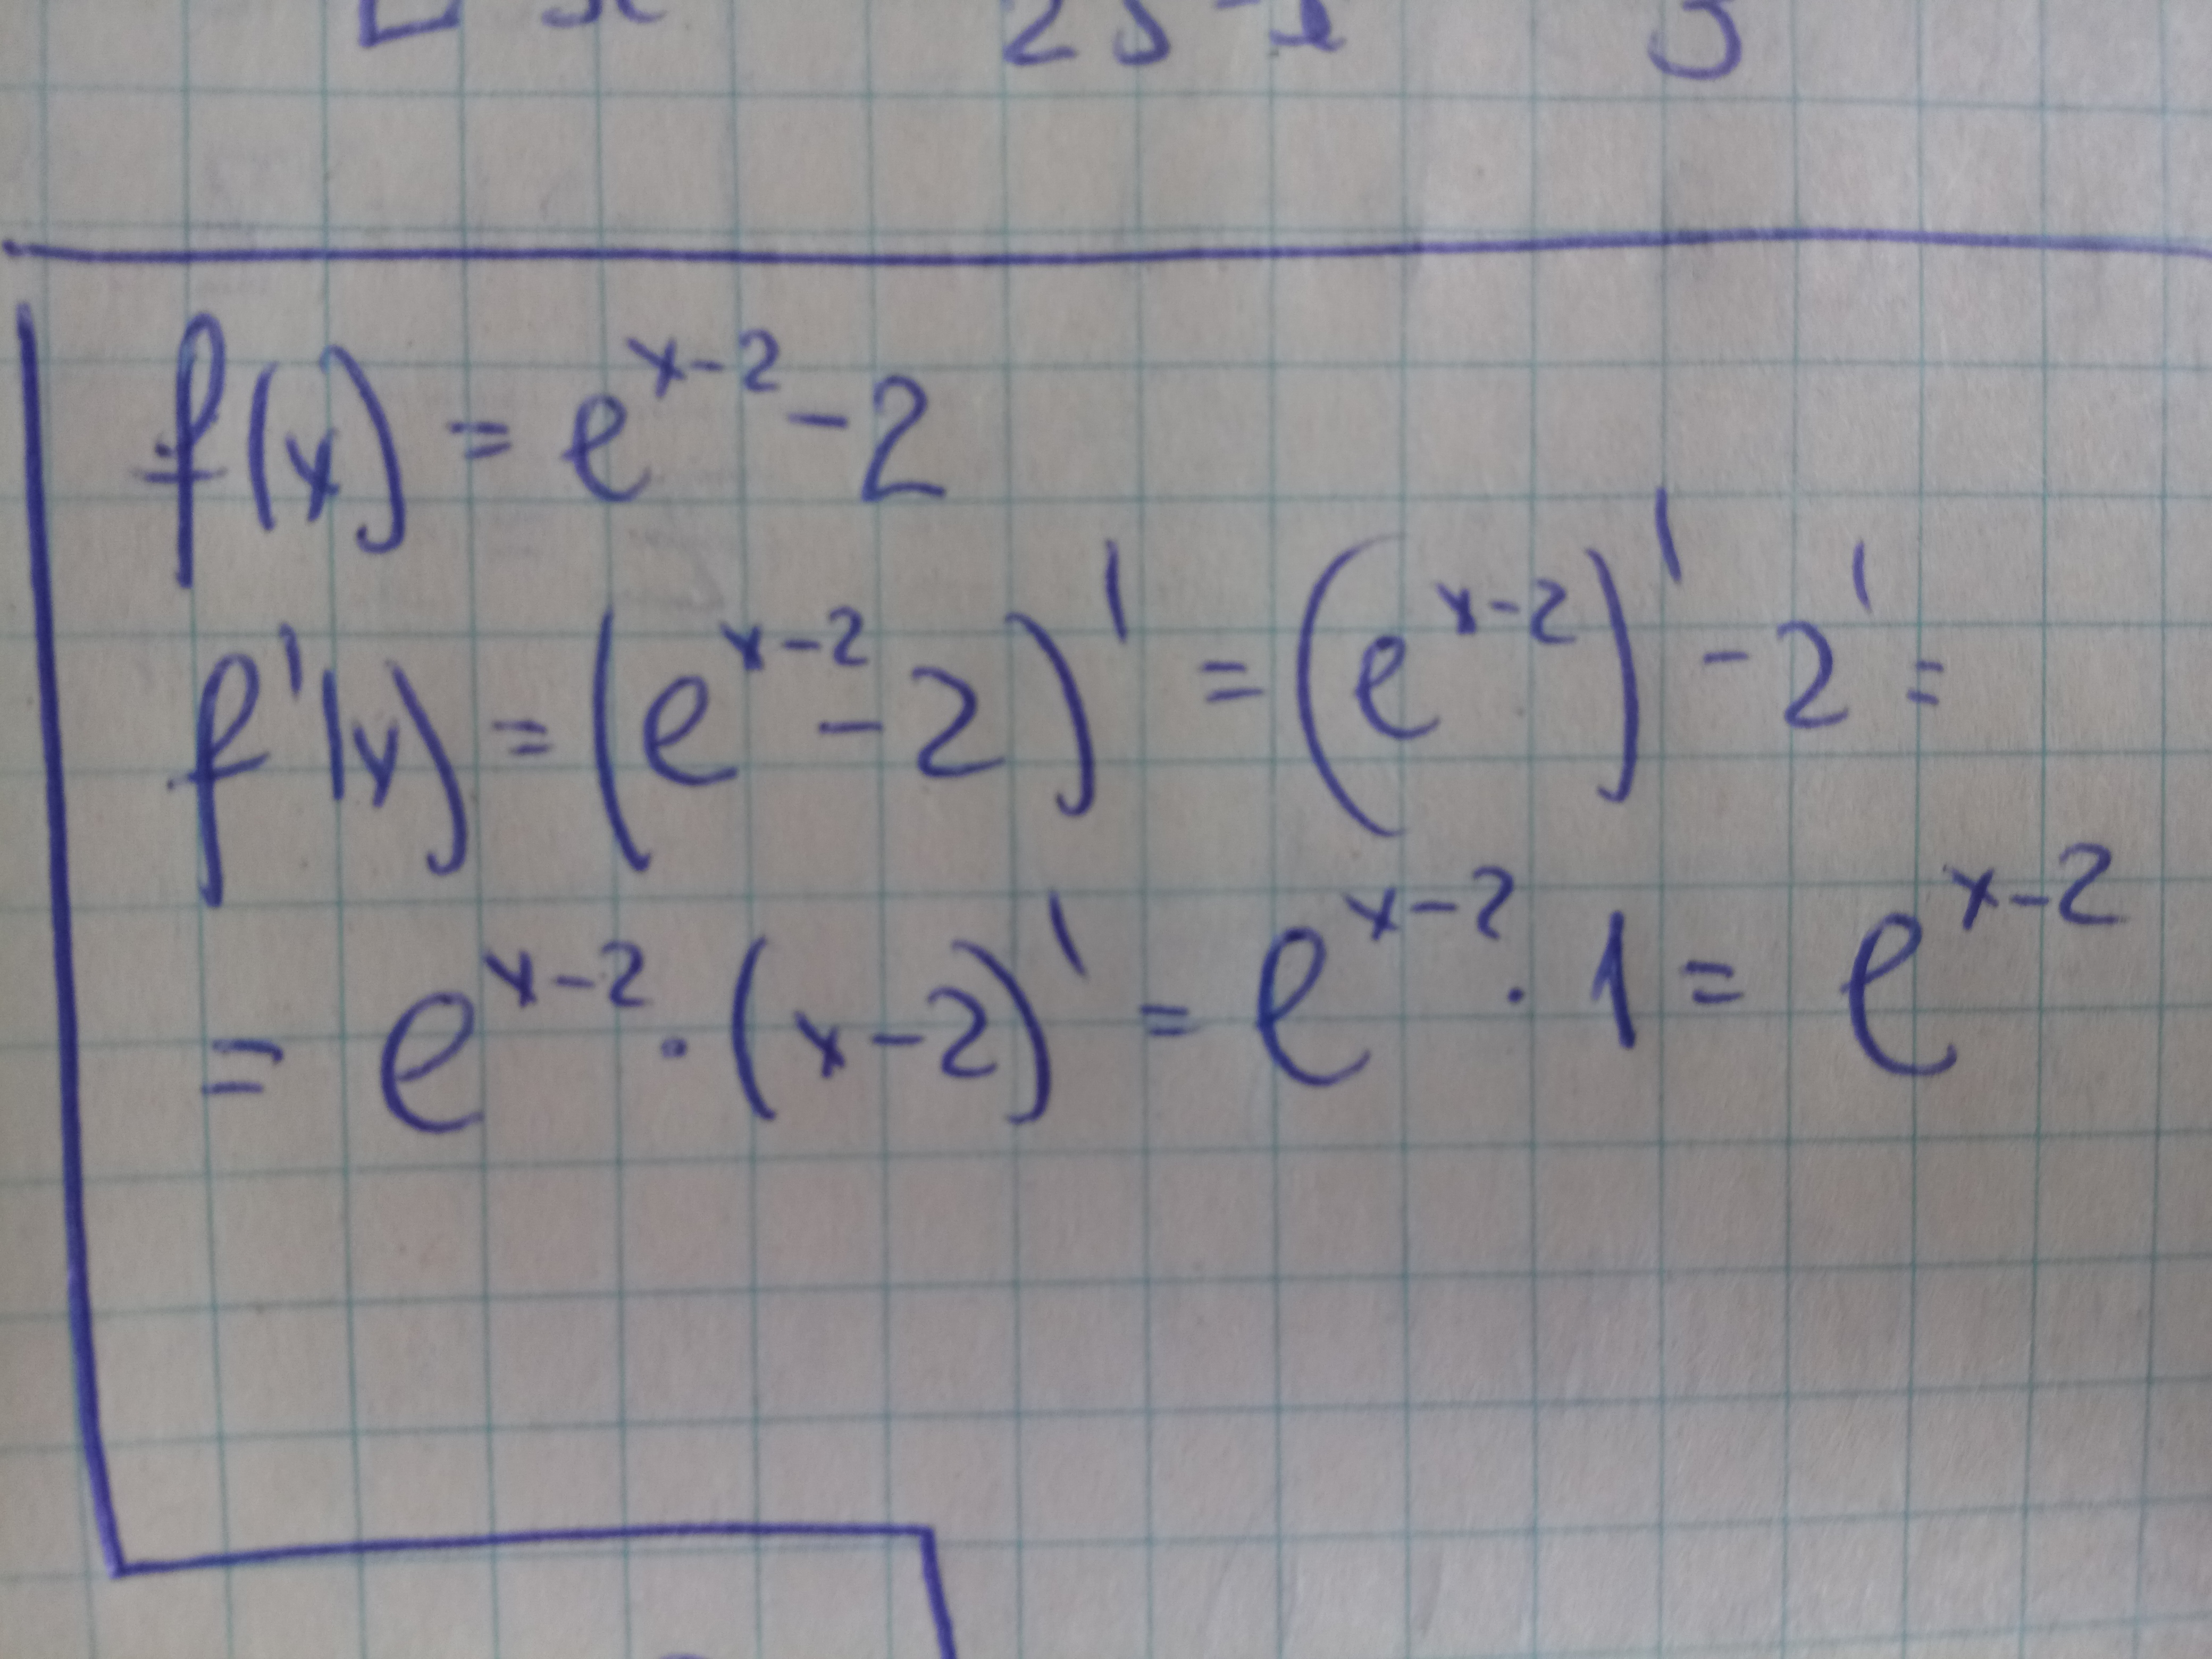 f(x) = e^{x-2} - 2
f'(x) = (e^{x-2} - 2)' = (e^{x-2})' - 2' =
= e^{x-2} · (x-2)' = e^{x-2} · 1 = e^{x-2}